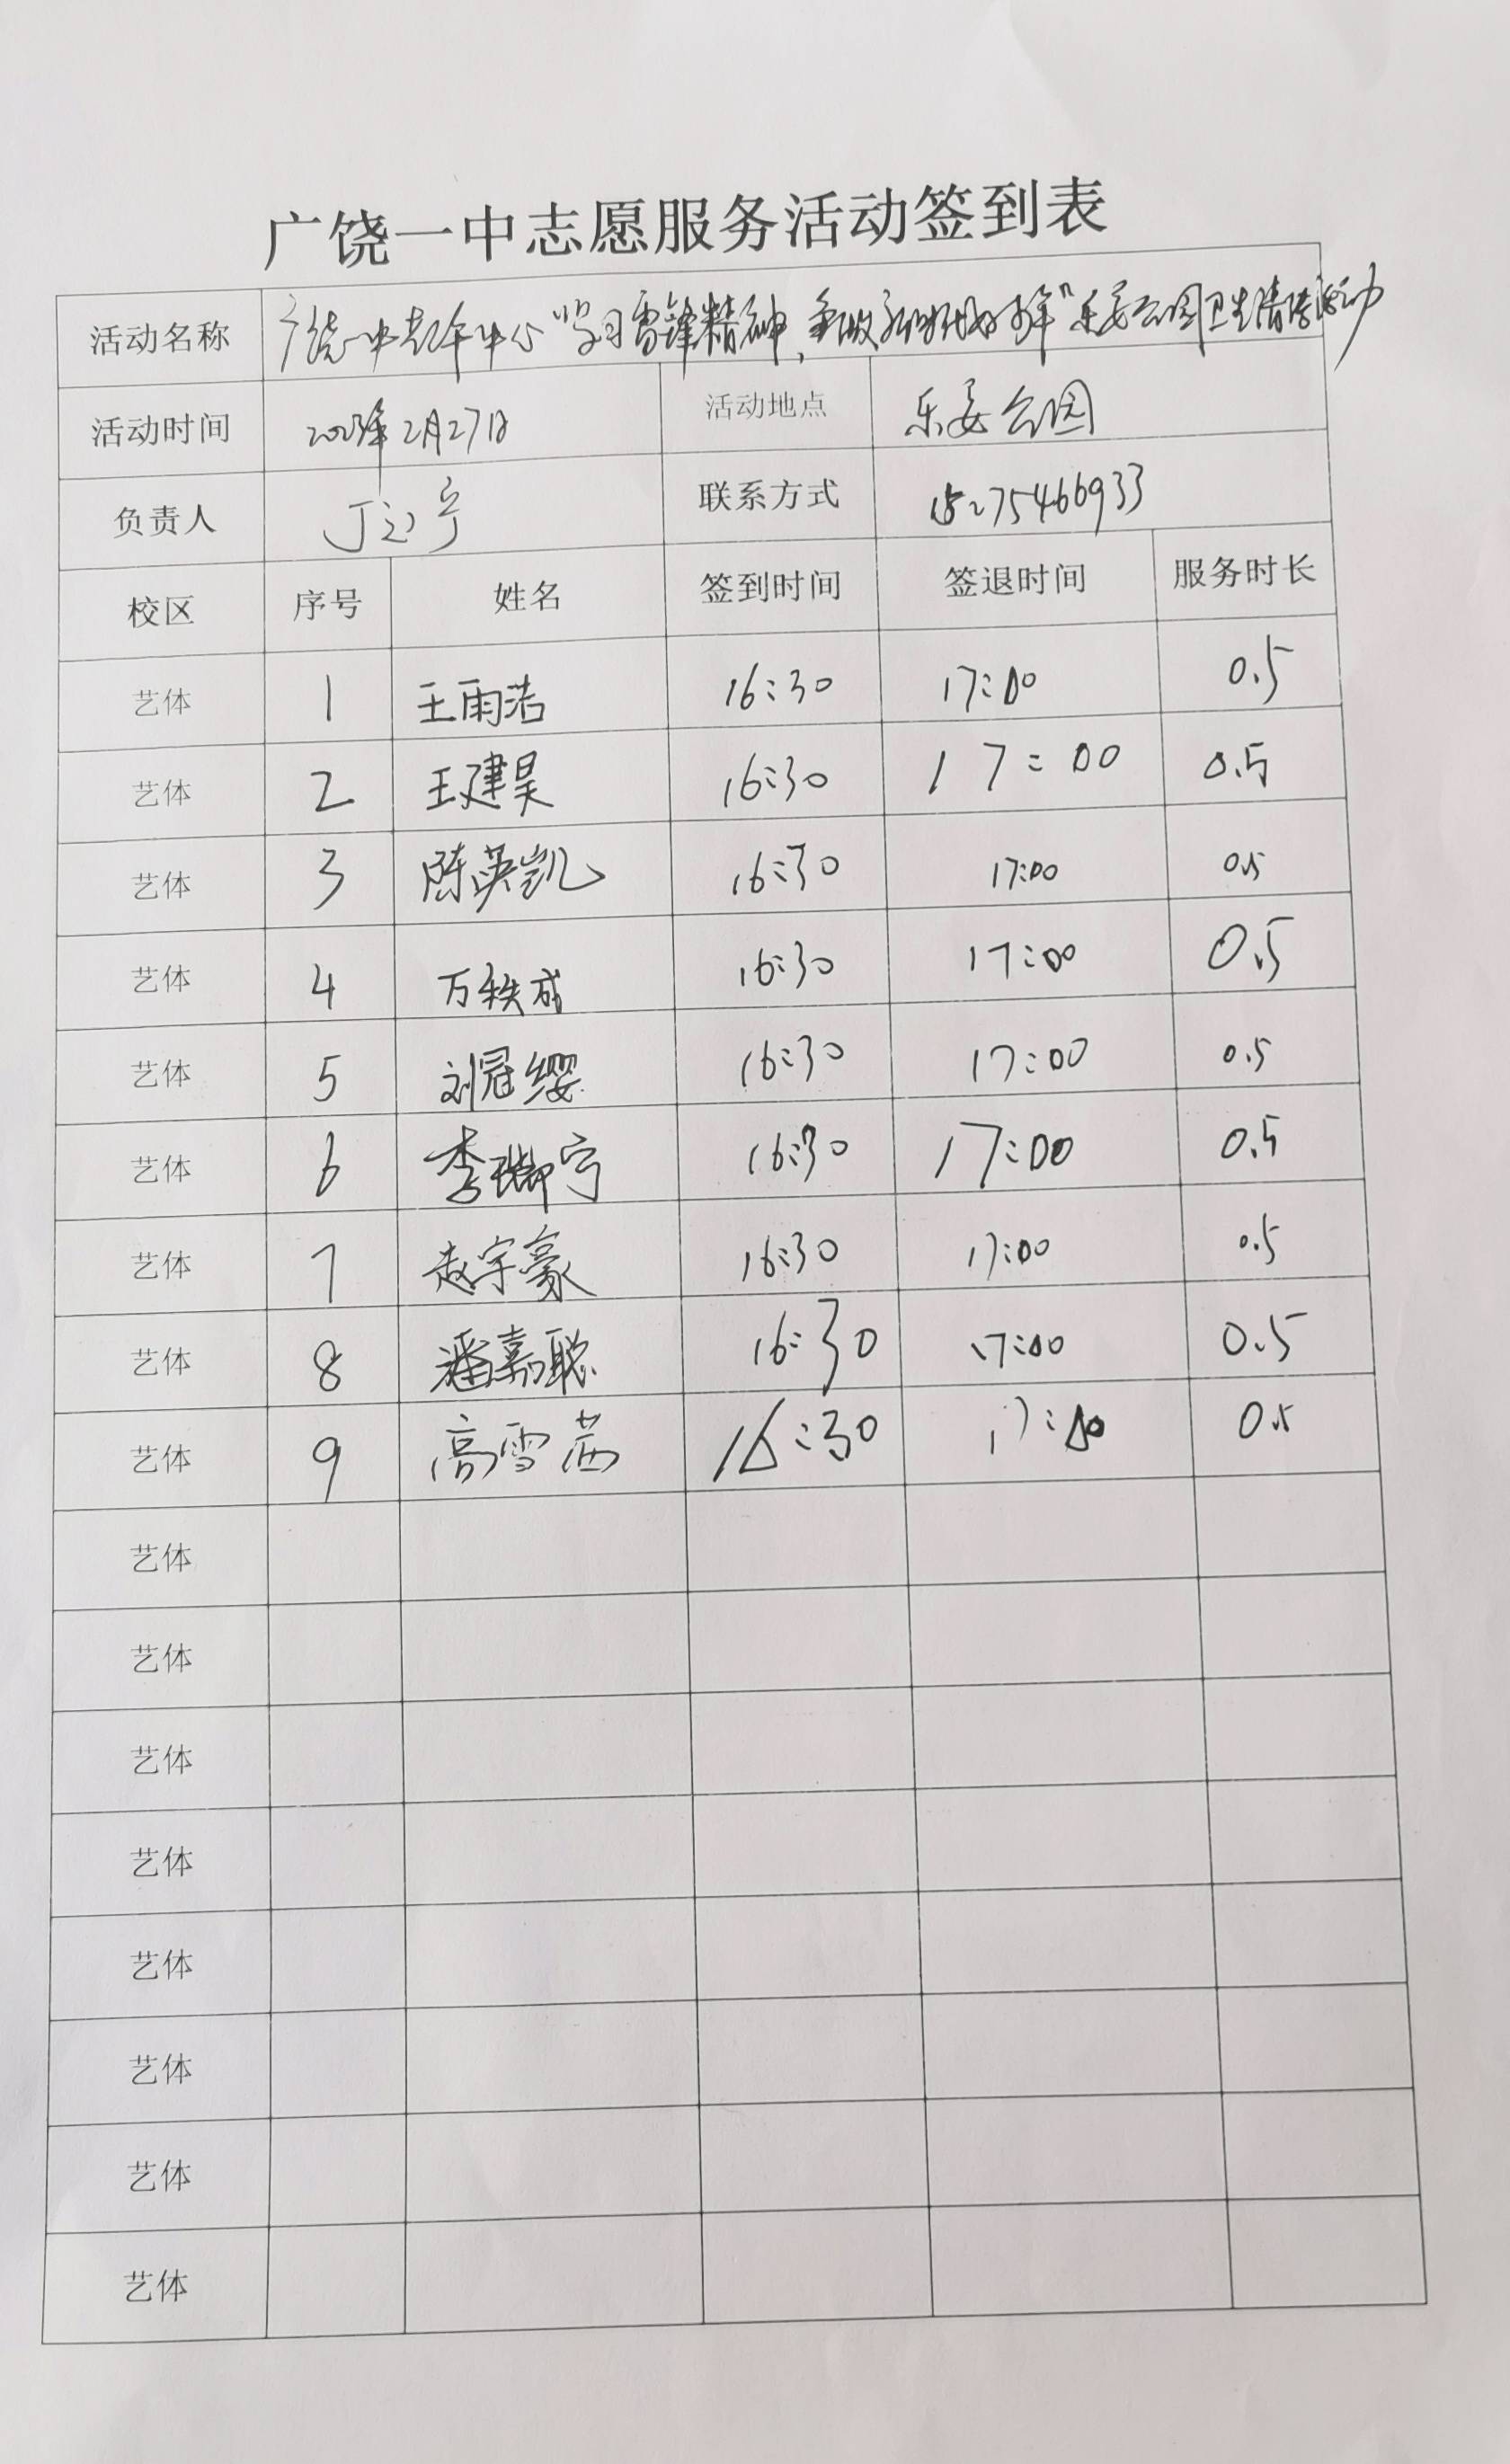 广饶一中志愿服务活动签到表
活动名称 广饶一中青年中心“学习雷锋精神,争做新时代好青年”乐安公园卫生清洁活动
活动时间 2023年2月27日 活动地点 乐安公园
负责人 丁 宁 联系方式 15275466933
校区 序号 姓名 签到时间 签退时间 服务时长
艺体 1 王雨浩 16:30 17:00 0.5
艺体 2 王建昊 16:30 17:00 0.5
艺体 3 陈英凯 16:30 17:00 0.5
艺体 4 万轶成 16:30 17:00 0.5
艺体 5 刘冠缨 16:30 17:00 0.5
艺体 6 李瑞宁 16:30 17:00 0.5
艺体 7 赵宇豪 16:30 17:00 0.5
艺体 8 潘嘉聪 16:30 17:00 0.5
艺体 9 高雪茜 16:30 17:00 0.5
艺体
艺体
艺体
艺体
艺体
艺体
艺体
艺体